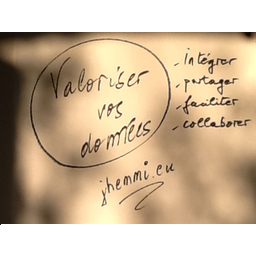 Valoriser
vos
données
- intégrer
- partager
- faciliter
- collaborer
jhemmi.eu